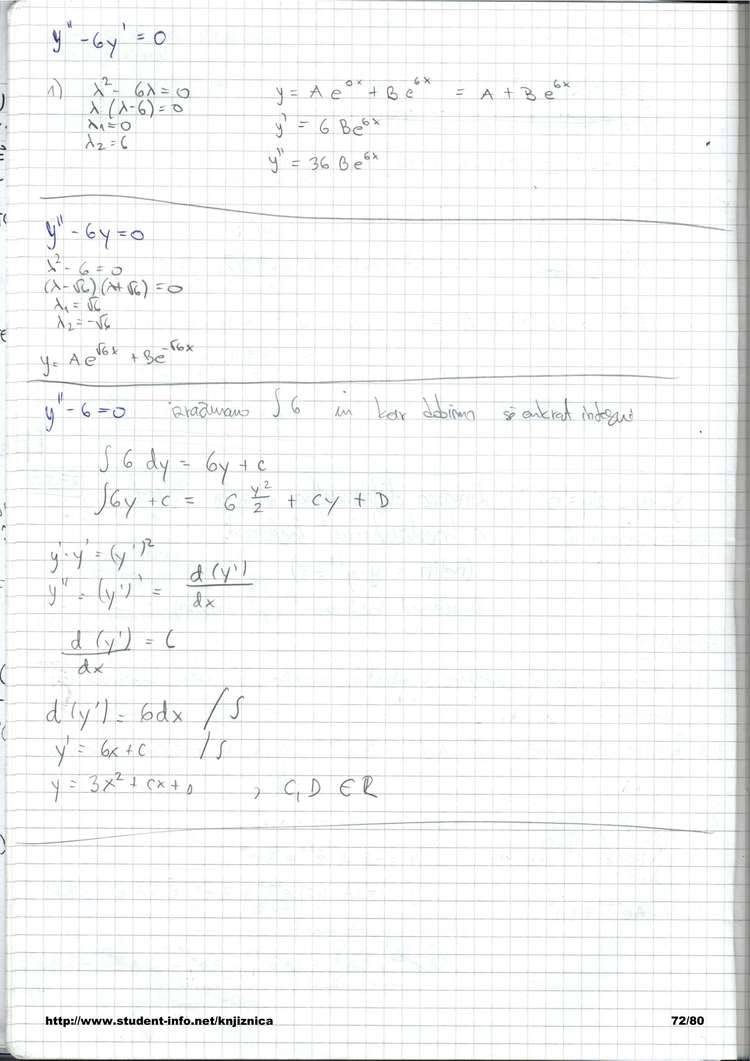 y'' - 6y' = 0
1) λ² - 6λ = 0 y = A e^0x + B e^6x = A + B e^6x
λ (λ-6) = 0
λ₁ = 0 y' = 6 B e^6x
λ₂ = 6
y'' = 36 B e^6x
y'' - 6y = 0
λ² - 6 = 0
(λ-√6)(λ+√6) = 0
λ₁ = √6
λ₂ = -√6
y = A e^√6x + B e^-√6x
y'' - 6 = 0 izračunamo ∫6 in kar dobimo še enkrat
∫ 6 dy = 6y + c
∫6y + c = 6 y²/2 + cy + D
y'·y' = (y')²
y'' = (y')' = d(y')/dx
d(y')/dx = 6
d(y') = 6dx /∫
y' = 6x + c /∫
y = 3x² + cx + D , C, D ∈ R
http://www.student-info.net/knjiznica 72/80